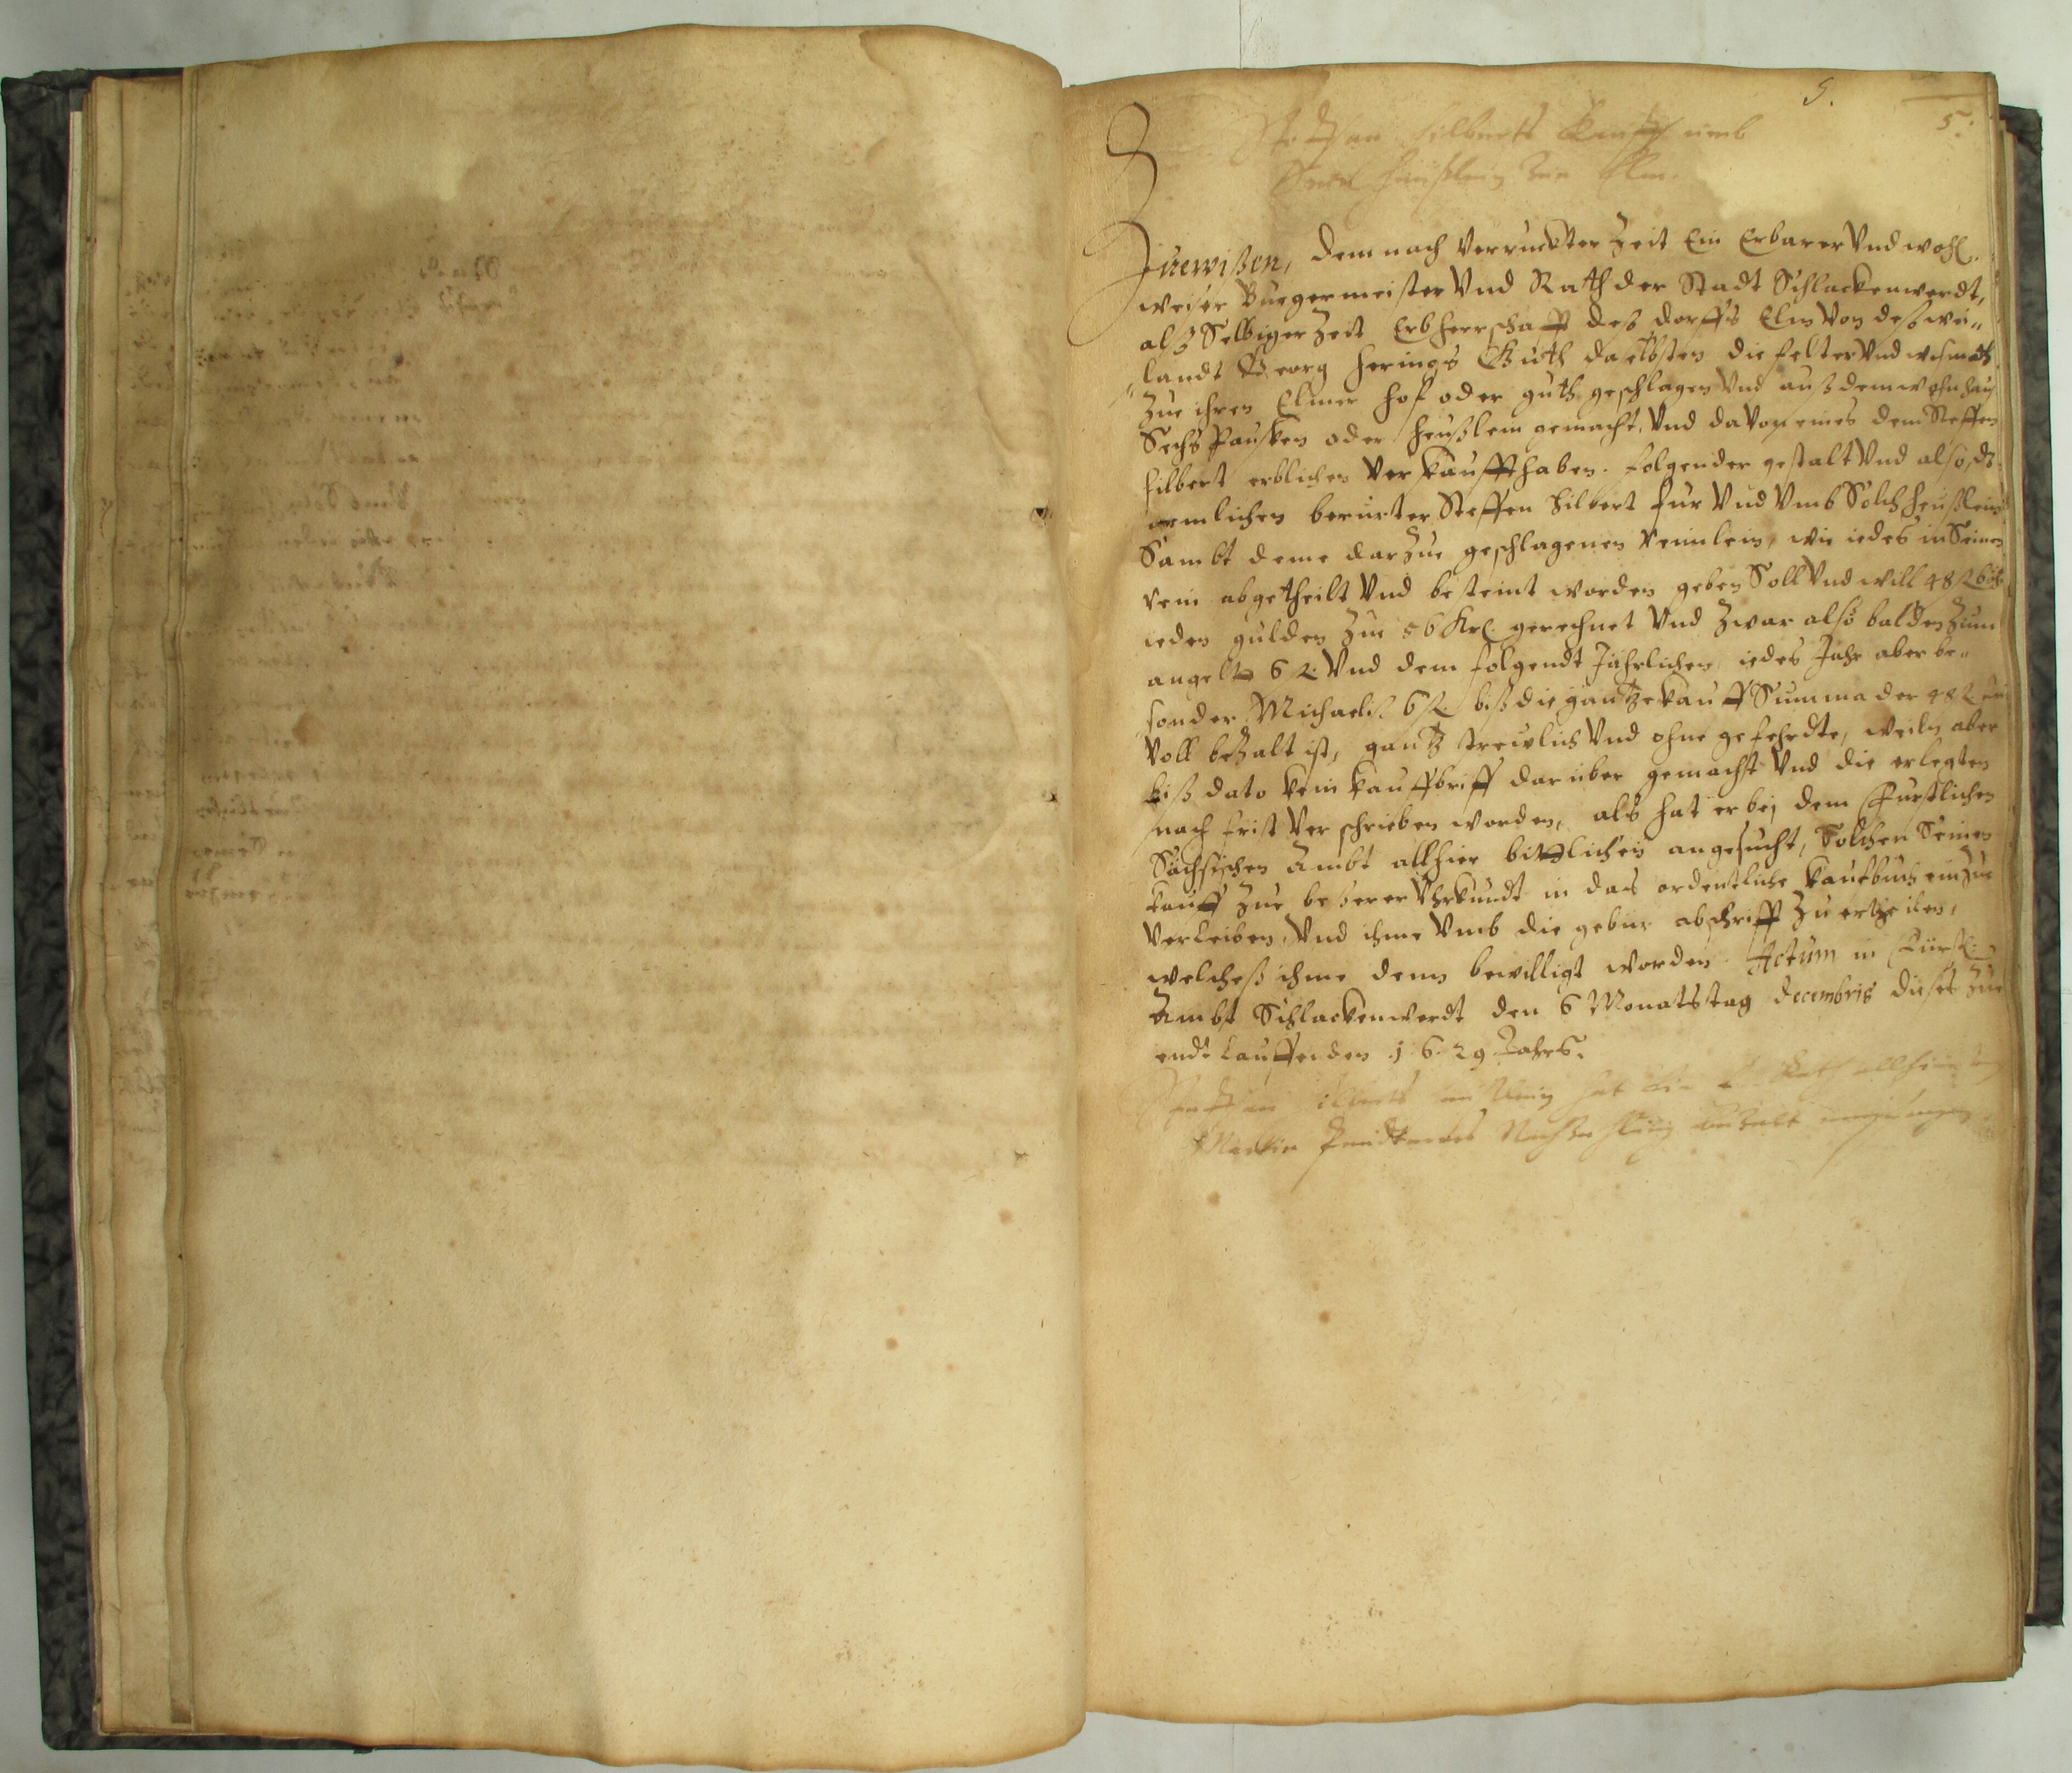 5.
5.
Steffan Hilberts Kauff umb
Sein Heußlein Zue Elm.
Zuewißen, Demnach Verruckter Zeit Ein Erbarer Vnd wohl-
weiser Burgermeister Vnd Rath der Stadt Schlackenwerdt,
alß Selbiger Zeit Erbherrschafft deß dorffs Elm Von deß wei-
landt Georg Herings Guth daselbsten die felter Vnd wismath
Zue ihren Elmer hof oder guth geschlagen Vnd auß dem wohnhauß
Sechs Pausten oder Heußlein gemacht, Vnd davon eines dem Steffen
Hilbert erblichen Verkaufft haben. folgender gestalt Vnd also, dz
nemlichen berürter Steffen Hilbert für Vnd Vmb Solch Heußlein
Sambt deme darzue geschlagenen Reinlein, wie iedes in Seinen
rein abgetheilt Vnd besteint worden geben Soll Vnd will 48 fl.
ieden gulden Zue 56 Krl. gerechnet Vnd Zwar also balden Zum
angelt 6 fl. Vnd dem folgendt Jährlichen, iedes Jahr aber be-
sonder Michaelis 6 fl. biß die gantze Kauff Summa der 48 fl.
Voll bezalt ist, gantz treulich Vnd ohne gefehrdte, weiln aber
biß dato kein kauffbriff darüber gemacht Vnd die erlegten
nach frist Verschrieben worden, als hat er bej dem Fürstlichen
Sächsischen Ambt allhier bittlichen angesucht, Solchen Seinen
kauff Zue beßerer Vhrkundt in das ordentliche Kaufbuch einzue
Verleiben, Vnd ihme Vmb die gebür abschrifft Zu ertheilen,
welcheß ihme denn bewilligt worden. Actum in Fürstl.
Ambt Schlackenwerdt den 6 Monatstag decembris dieses Zue
endt Lauffenden 1629 Jahrs.
hat Ein E. Rath allhier
Martin